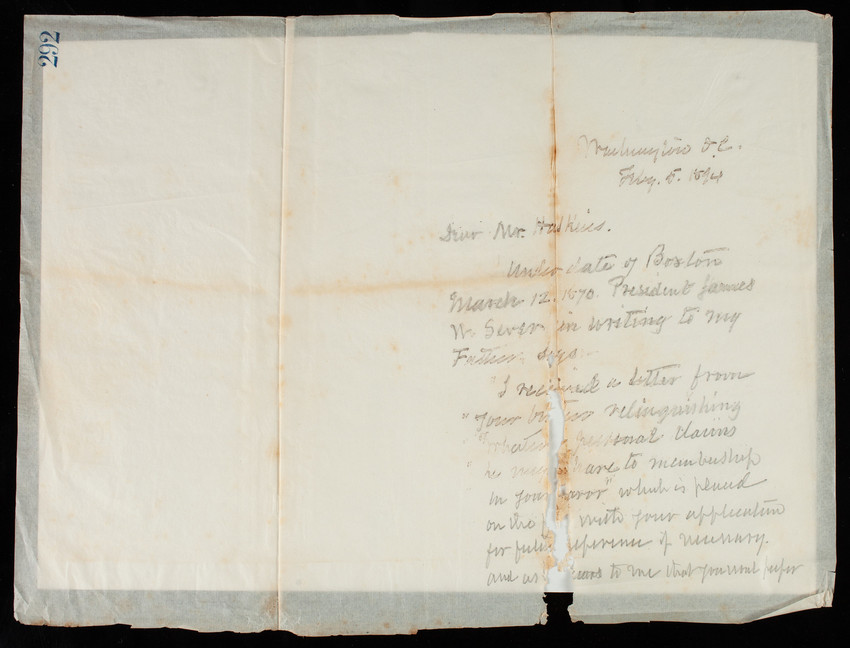 292
Washington D.C.
Feby. 5. 1894
Dear Mr.
Under date of Boston
March 12. 1870. President James
W. Sever in writing to my
Father says
"I received a letter from
"your brother relinquishing
"whatever personal claims
"he may have to membership
in your favor" which is placed
on the with your application
for future reference if necessary.
and as to me that personal